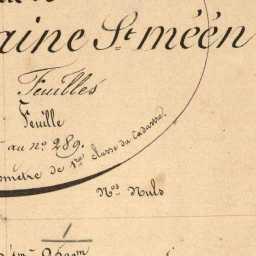 aine St. méén
Feuilles
Feuille
au nº 289.
omètre de 1re classe du Cadastre.
Nos Nuls
1